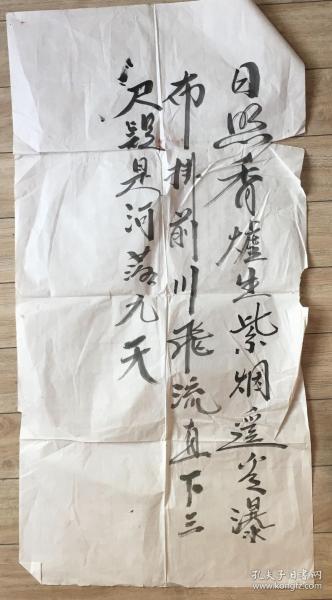 日照香爐生紫烟遥看瀑
布掛前川飛流直下三
尺疑是河落九天
孔夫子旧书网
www.kongfz.com